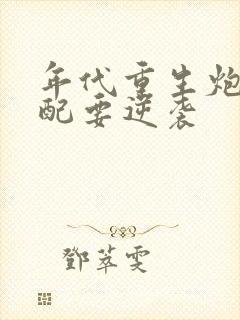 年代重生炮
配要逆袭
鄧萃雯